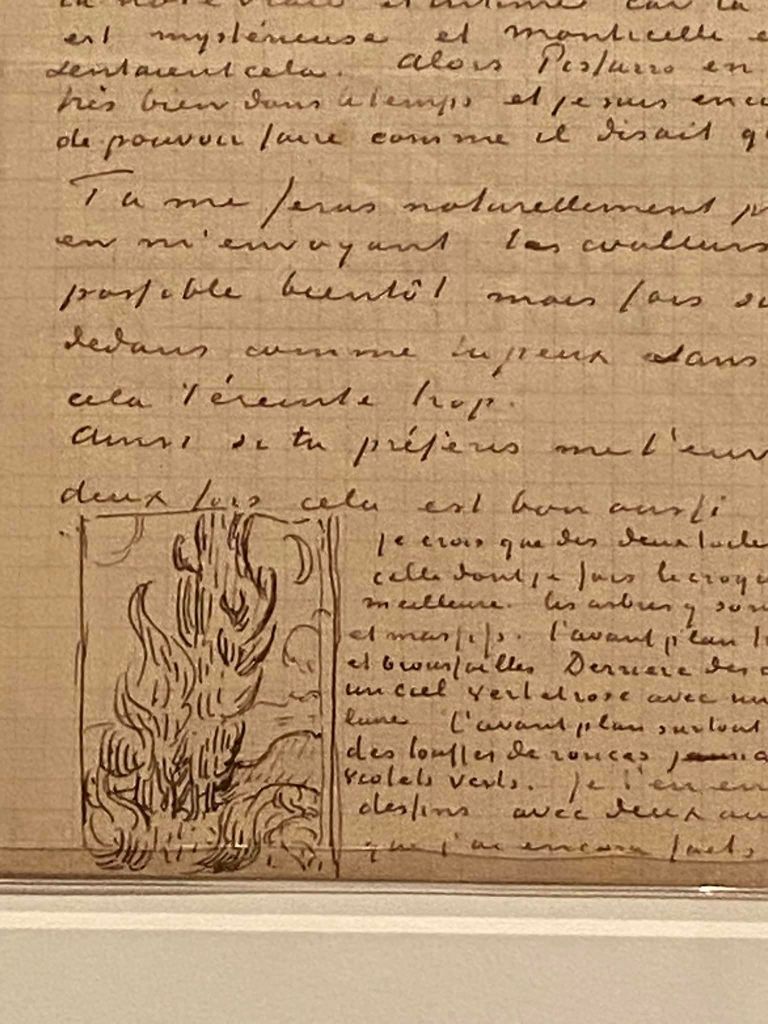 la note vraie et intime car la
est mystérieuse et monticelle e
sentaient cela. Alors Pissarro en
très bien dans le temps et je suis enco
de pouvoir faire comme il disait qu
Tu me feras naturellement p
en m'envoyant les couleurs
possible bientôt mais fais su
dedans comme tu peux dans
cela t'éreinte trop.
Ainsi si tu préfères me l'env
deux fois cela est bon aussi
je crois que des deux toile
celle dont je fais le croqu
meilleure. les arbres y son
et massifs. l'avant plan
et broussailles Derrière des c
un ciel vert et rose avec un
lune L'avant plan surtout
des touffes de ronces
violets verts. Je t'en en
dessins avec deux au
que j'ai encore faits,